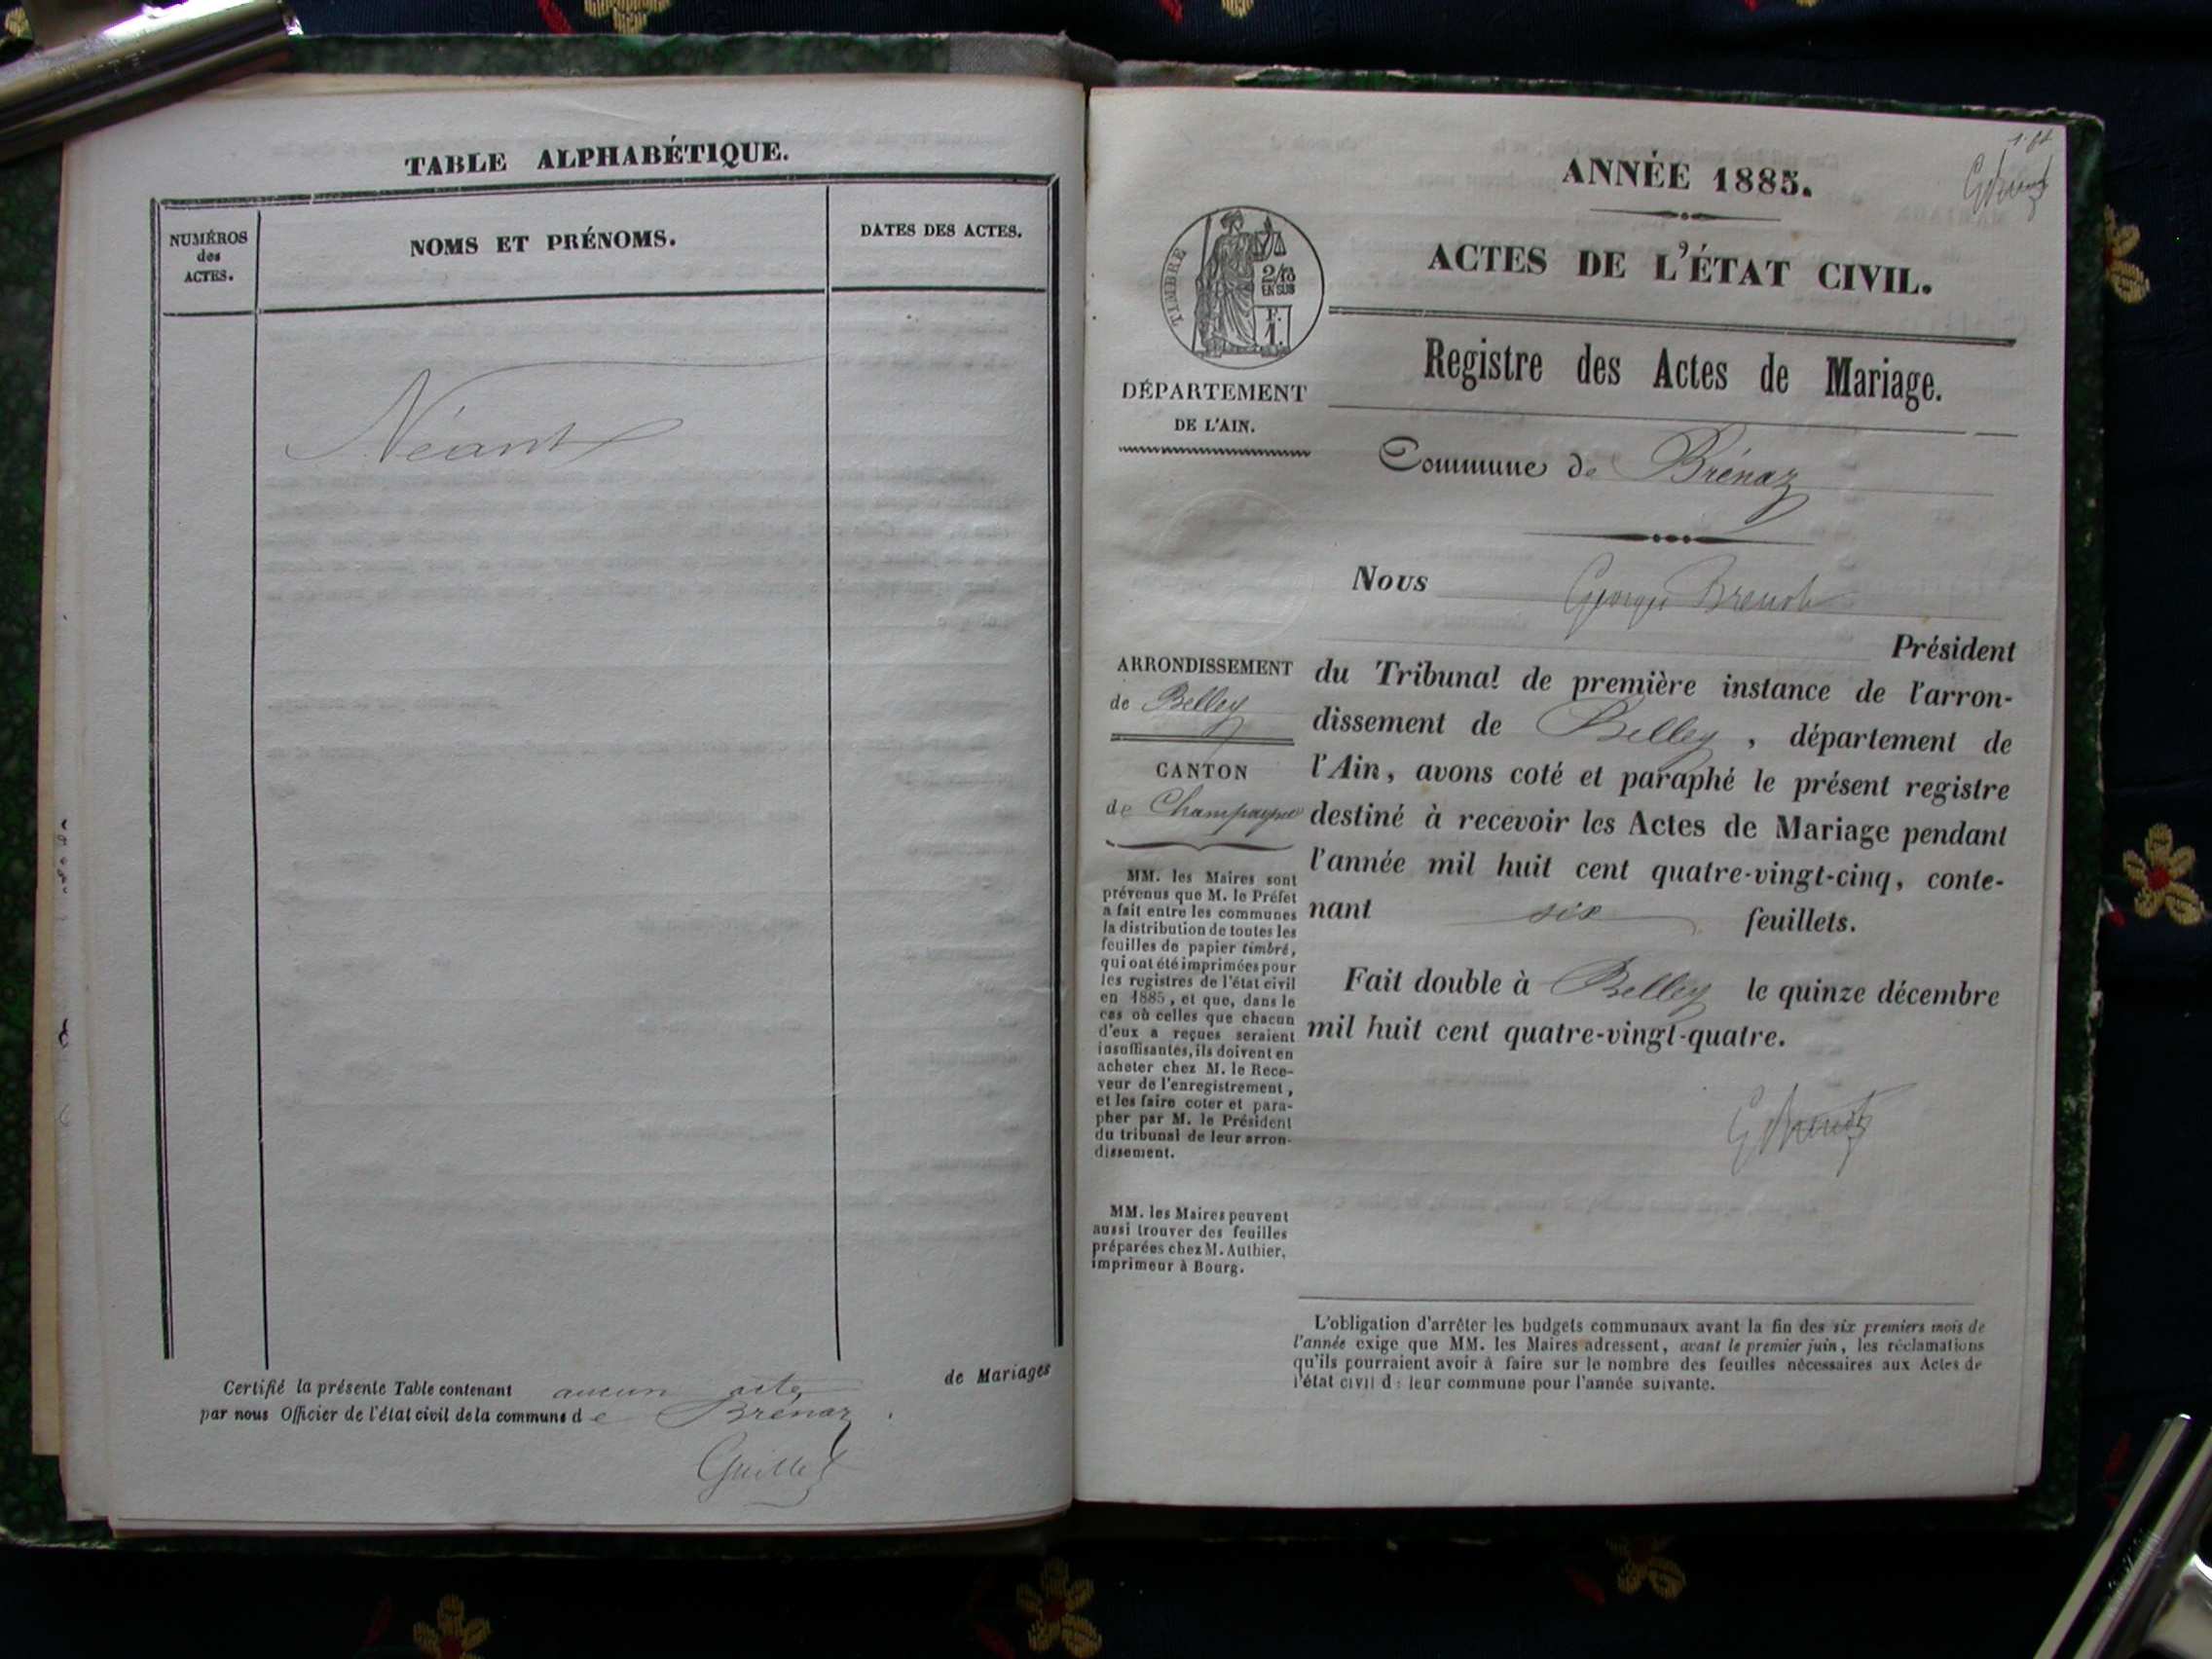 TABLE ALPHABÉTIQUE.
NUMÉROS
des
ACTES.
NOMS ET PRÉNOMS.
DATES DES ACTES.
Néant
Certifié la présente Table contenant aucun acte de Mariages
par nous Officier de l'état civil de la commune d e Brénaz .
Guillet
1. ft
ANNÉE 1885.
ACTES DE L'ÉTAT CIVIL.
TIMBRE
2/10
EN SUS
F.
1.
Registre des Actes de Mariage.
DÉPARTEMENT
DE L'AIN.
Commune de Brénaz
Nous Georges
Président
du Tribunal de première instance de l'arron-
dissement de Belley , département de
l'Ain, avons coté et paraphé le présent registre
destiné à recevoir les Actes de Mariage pendant
l'année mil huit cent quatre-vingt-cinq, conte-
nant six feuillets.
Fait double à Belley le quinze décembre
mil huit cent quatre-vingt-quatre.
ARRONDISSEMENT
de Belley
CANTON
de Champagne
MM. les Maires sont
prévenus que M. le Préfet
a fait entre les communes
la distribution de toutes les
feuilles de papier timbré,
qui ont été imprimées pour
les registres de l'état civil
en 1885, et que, dans le
cas où celles que chacun
d'eux a reçues seraient
insuffisantes, ils doivent en
acheter chez M. le Rece-
veur de l'enregistrement,
et les faire coter et para-
pher par M. le Président
du tribunal de leur arron-
dissement.
MM. les Maires peuvent
aussi trouver des feuilles
préparées chez M. Authier,
imprimeur à Bourg.
L'obligation d'arrêter les budgets communaux avant la fin des six premiers mois de
l'année exige que MM. les Maires adressent, avant le premier juin, les réclamations
qu'ils pourraient avoir à faire sur le nombre des feuilles nécessaires aux Actes de
l'état civil d: leur commune pour l'année suivante.